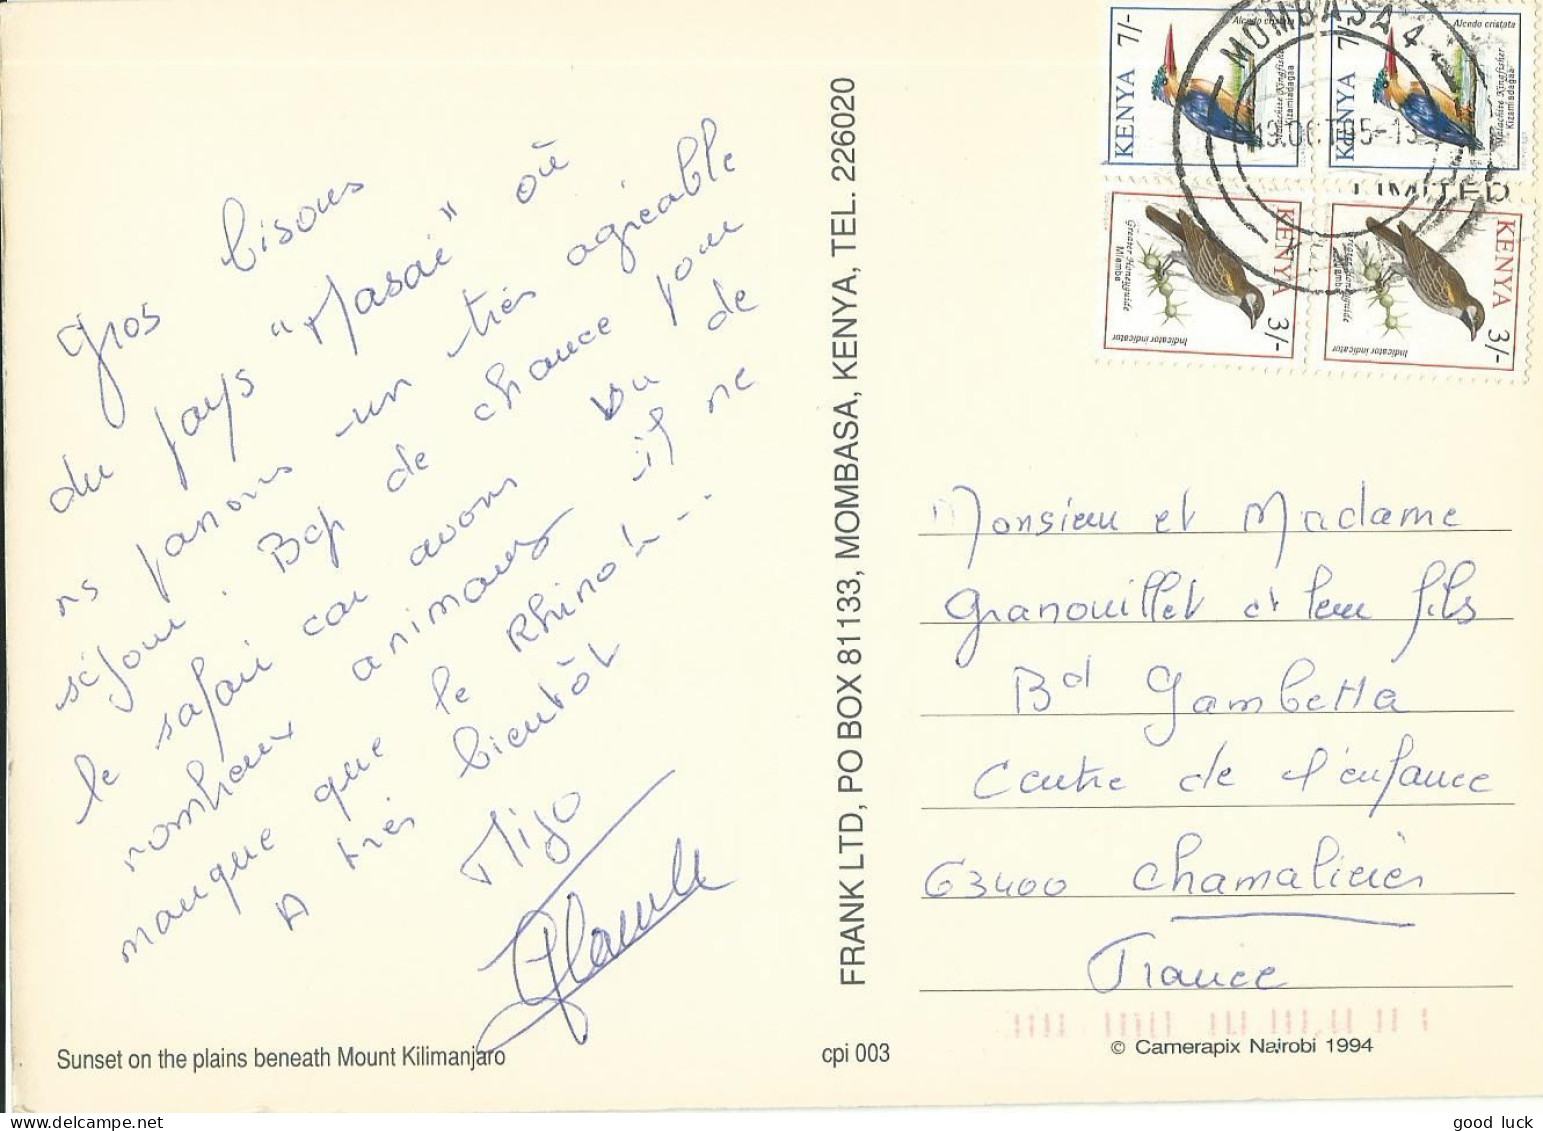 Gros bisous
du pays "Masaï" où
ns passons un très agréable
séjour. Bcp de chance pour
le safari car avons vu de
nombreux animaux il ne
manque que le Rhino...
A très bientôt
Mijo
FRANK LTD, PO BOX 81133, MOMBASA, KENYA, TEL. 226020
Sunset on the plains beneath Mount Kilimanjaro
cpi 003
KENYA 7/-
Alcedo cristata
Malachite Kingfisher
Kizamiadagaa
KENYA 7/-
Alcedo cristata
Malachite Kingfisher
Kizamiadagaa
KENYA 3/-
Greater Honeyguide
Mlamba
Indicator indicator
KENYA 3/-
Greater Honeyguide
Mlamba
Indicator indicator
MOMBASA 4
19 OCT 95-13
LIMITED
Monsieur et Madame
Granouillet et leur fils
Bd Gambetta
Centre de l'enfance
63400 Chamalières
France
© Camerapix Nairobi 1994
good luck